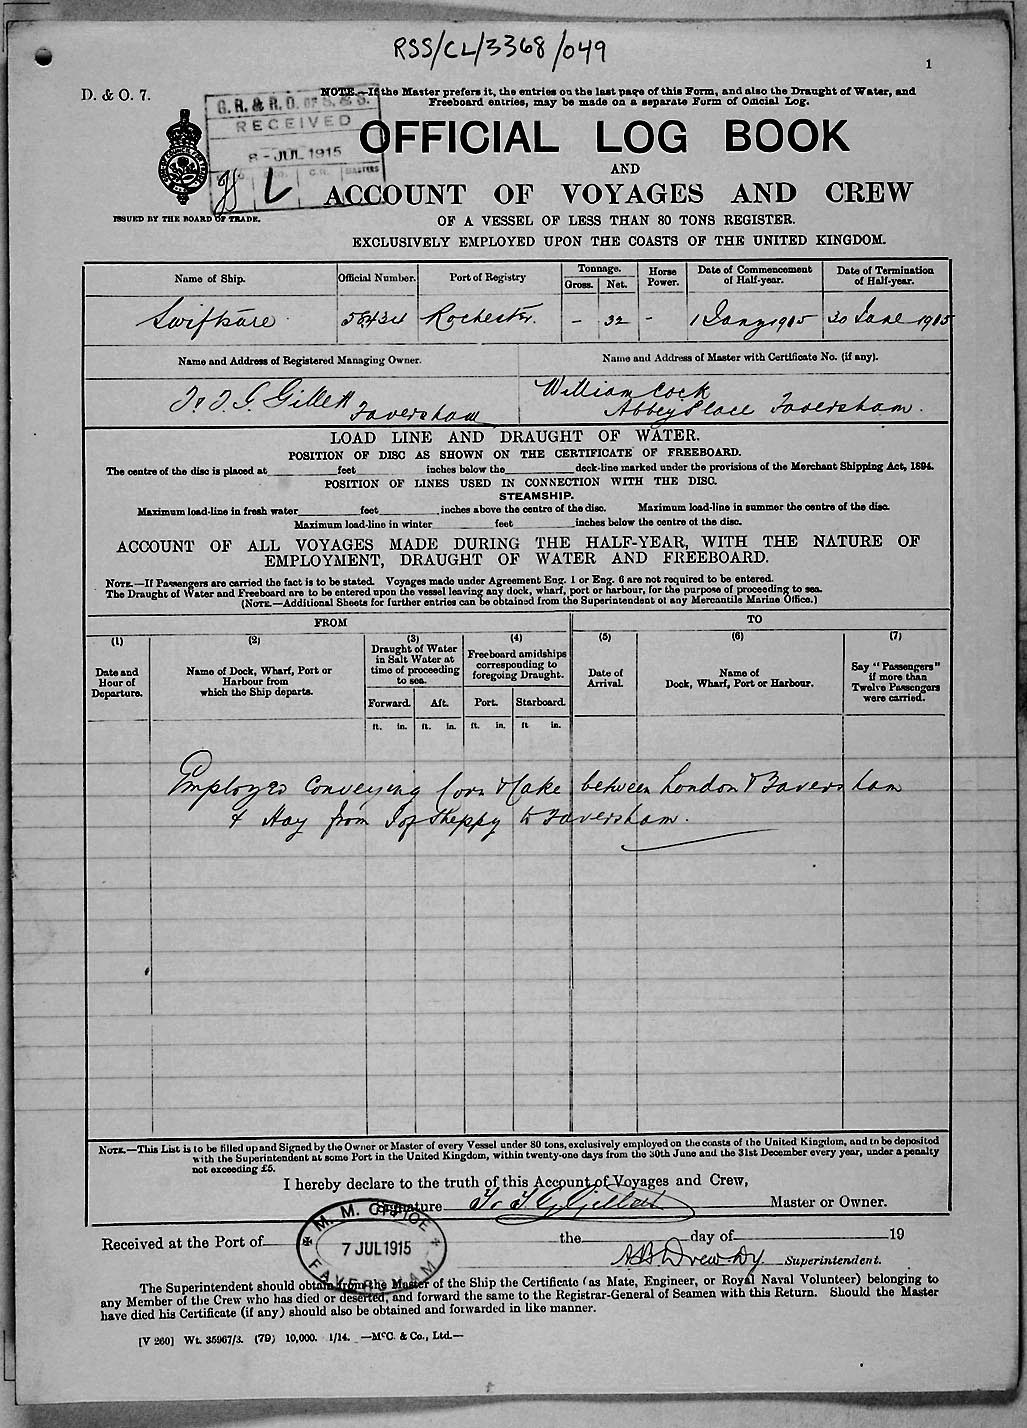 RSS/CL/3368/049
1
D. & O. 7.
NOTE.—If the Master prefers it, the entries on the last page of this Form, and also the Draught of Water, and
Freeboard entries, may be made on a separate Form of Official Log.
G. R. & R. O. OF S. & S.
RECEIVED
8 - JUL 1915
MASTERS
L
ISSUED BY THE BOARD OF TRADE.
OFFICIAL LOG BOOK
AND
ACCOUNT OF VOYAGES AND CREW
OF A VESSEL OF LESS THAN 80 TONS REGISTER.
EXCLUSIVELY EMPLOYED UPON THE COASTS OF THE UNITED KINGDOM.
Name of Ship. Official Number. Port of Registry Tonnage. Gross. Net. Horse Power. Date of Commencement of Half-year. Date of Termination of Half-year.
Swiftsure 58434 Rochester. - 32 - 1 Jany 1915 30 June 1915
Name and Address of Registered Managing Owner. Name and Address of Master with Certificate No. (if any).
Gillett Faversham William Cock
Abbey Place Faversham.
LOAD LINE AND DRAUGHT OF WATER.
POSITION OF DISC AS SHOWN ON THE CERTIFICATE OF FREEBOARD.
The centre of the disc is placed at feet inches below the deck-line marked under the provisions of the Merchant Shipping Act, 1894.
POSITION OF LINES USED IN CONNECTION WITH THE DISC.
STEAMSHIP.
Maximum load-line in fresh water feet inches above the centre of the disc. Maximum load-line in summer the centre of the disc.
Maximum load-line in winter feet inches below the centre of the disc.
ACCOUNT OF ALL VOYAGES MADE DURING THE HALF-YEAR, WITH THE NATURE OF
EMPLOYMENT, DRAUGHT OF WATER AND FREEBOARD.
NOTE.—If Passengers are carried the fact is to be stated. Voyages made under Agreement Eng. 1 or Eng. 6 are not required to be entered.
The Draught of Water and Freeboard are to be entered upon the vessel leaving any dock, wharf, port or harbour, for the purpose of proceeding to sea.
(NOTE.—Additional Sheets for further entries can be obtained from the Superintendent of any Mercantile Marine Office.)
FROM TO
(1) (2) (3) (4) (5) (6) (7)
Date and Hour of Departure. Name of Dock, Wharf, Port or Harbour from which the Ship departs. Draught of Water in Salt Water at time of proceeding to sea. Freeboard amidships corresponding to foregoing Draught. Date of Arrival. Name of Dock, Wharf, Port or Harbour. Say "Passengers" if more than Twelve Passengers were carried.
Forward. Aft. Port. Starboard.
ft. in. ft. in. ft. in. ft in.
Employed conveying Corn & Cake between London & Faversham
& Hay from I of Sheppy to Faversham.
NOTE.—This List is to be filled up and Signed by the Owner or Master of every Vessel under 80 tons, exclusively employed on the coasts of the United Kingdom, and to be deposited
with the Superintendent at some Port in the United Kingdom, within twenty-one days from the 30th June and the 31st December every year, under a penalty
not exceeding £5.
I hereby declare to the truth of this Account of Voyages and Crew,
Signature Gillett Master or Owner.
Received at the Port of the day of 19
M. M. OFFICE
7 JUL 1915
FAVERSHAM
Drew Dy. Superintendent.
The Superintendent should obtain from the Master of the Ship the Certificate (as Mate, Engineer, or Royal Naval Volunteer) belonging to
any Member of the Crew who has died or deserted, and forward the same to the Registrar-General of Seamen with this Return. Should the Master
have died his Certificate (if any) should also be obtained and forwarded in like manner.
[V 260] Wt. 35967/3. (79) 10,000. 1/14. —McC. & Co., Ltd.—